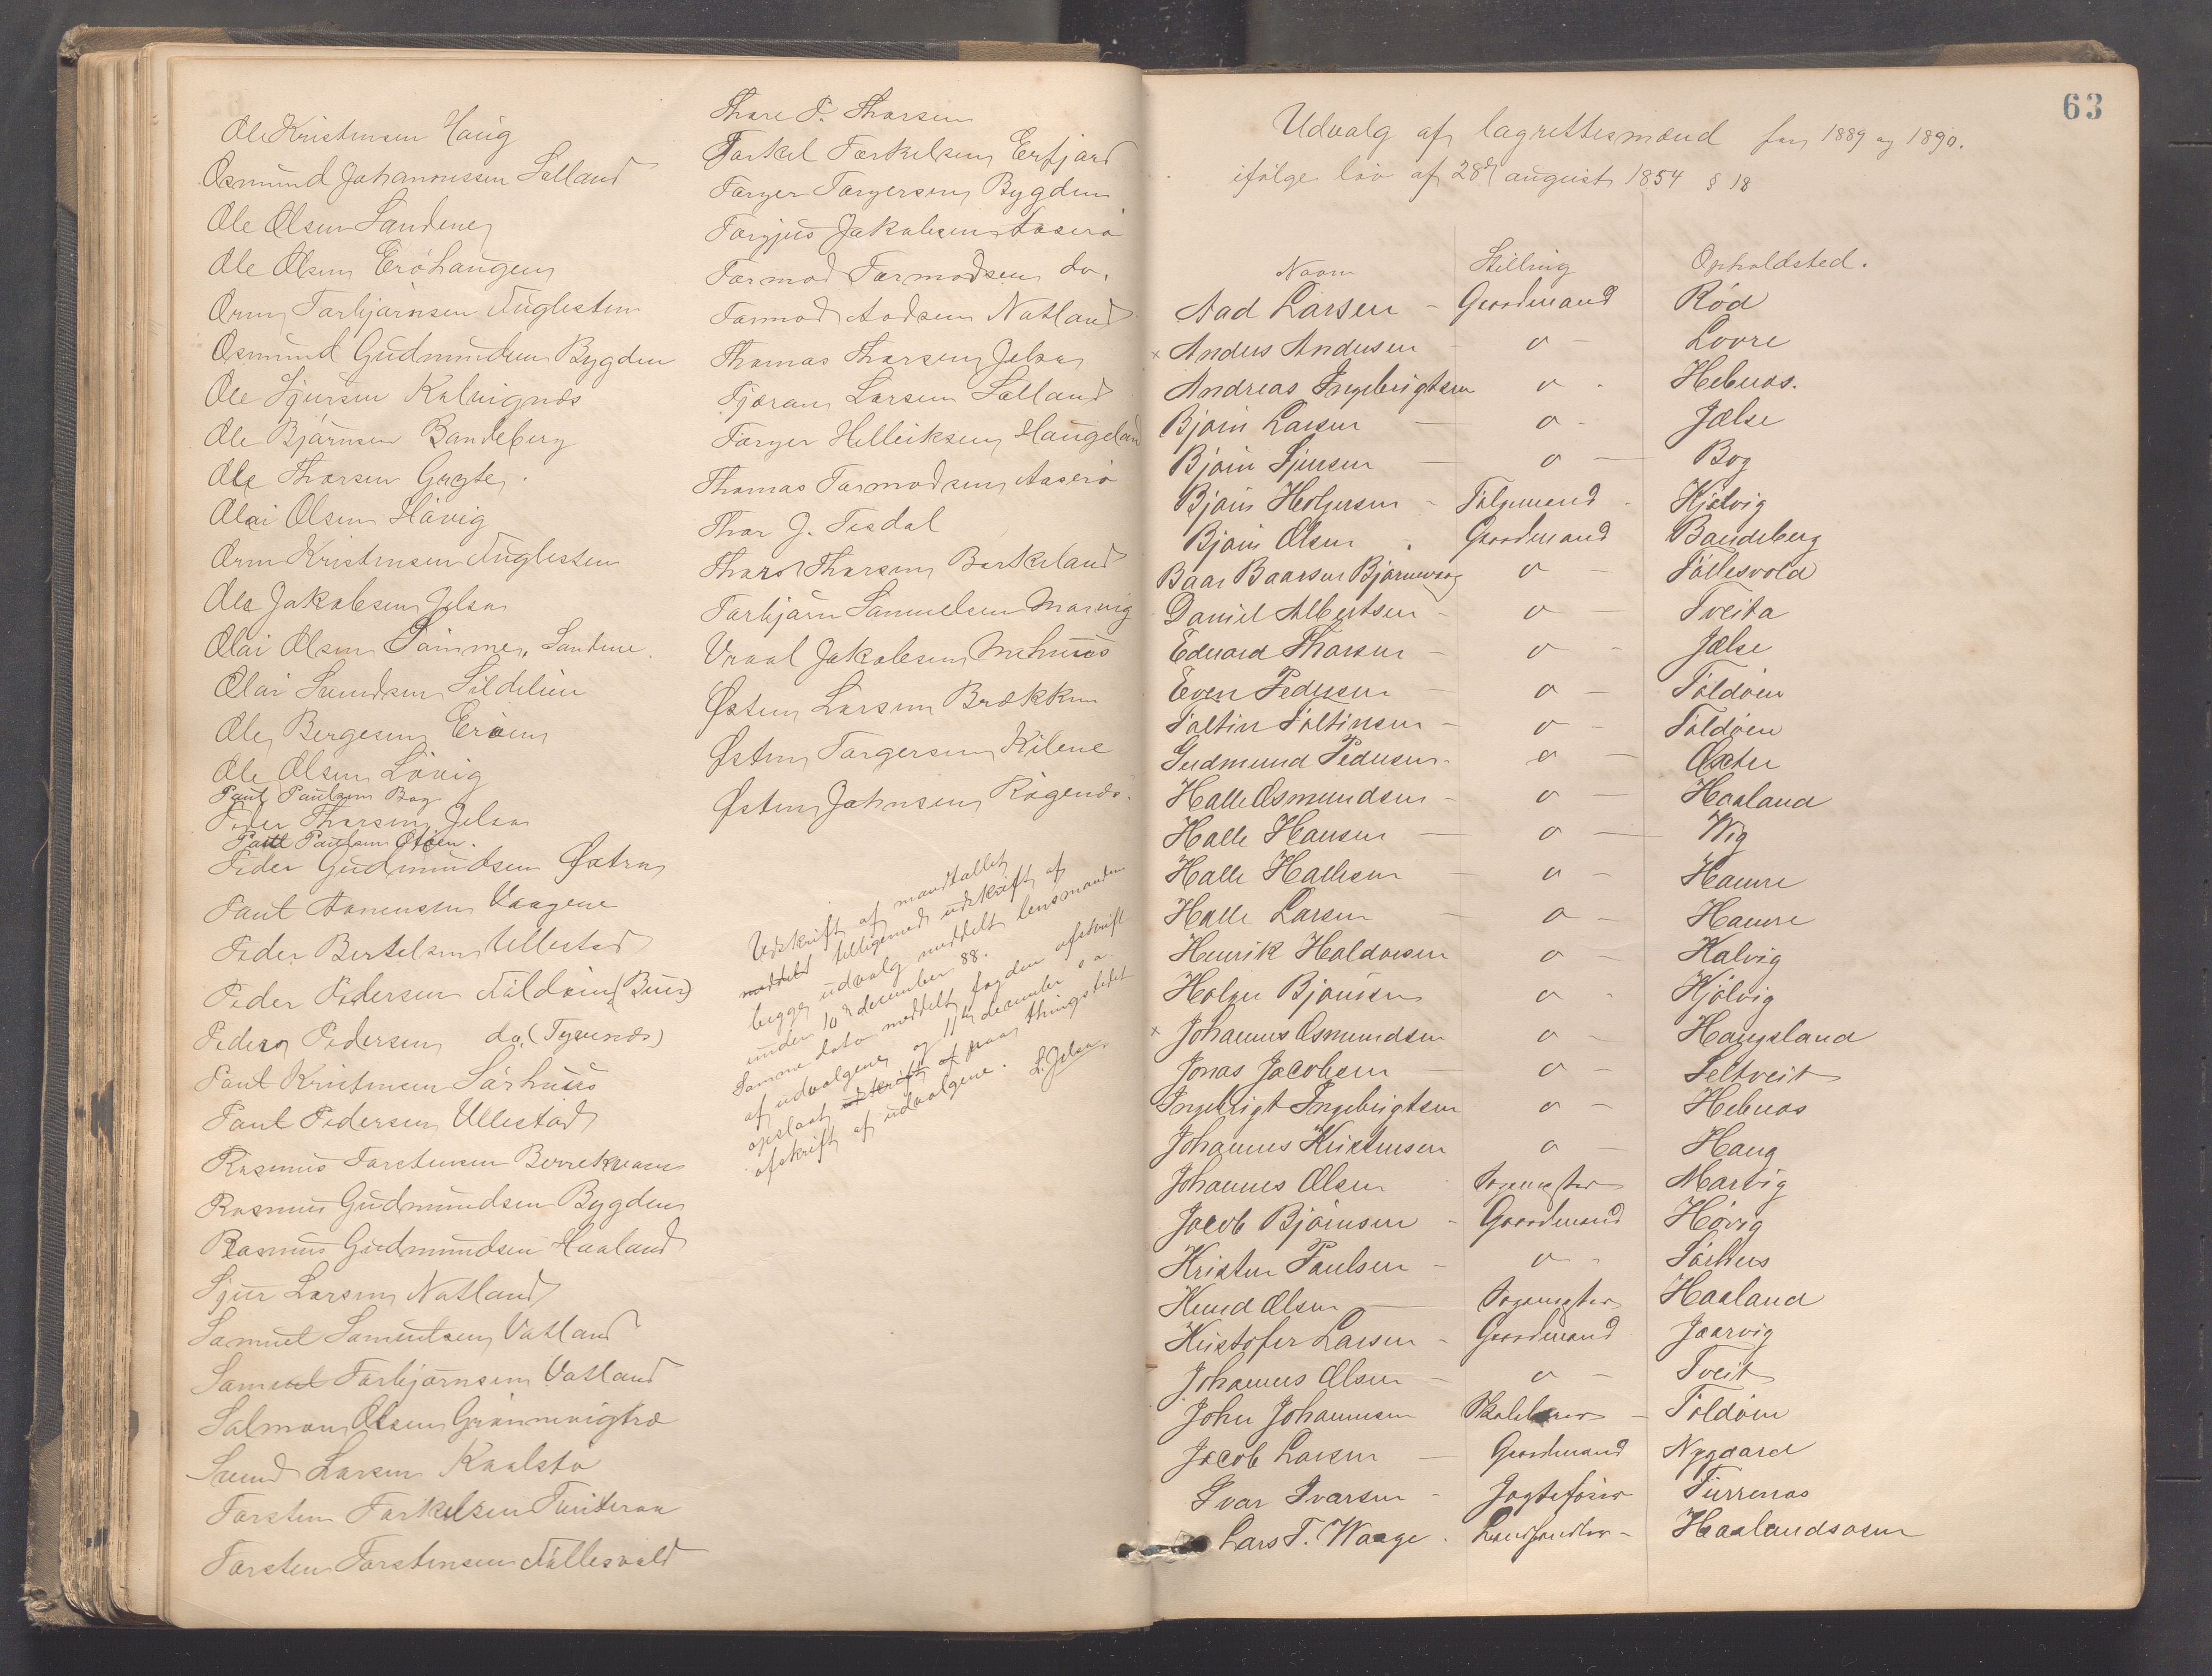 Ole Kristensen Haug
Osmund Johannessen Hålland
Ole Olsen Sandene
Ole Olsen Eröhaugen
Orm Torbjørnsen Fuglesten
Osmund Gudmundsen Bygden
Ole Sjursen Kalvignæs
Ole Bjørnsen Bandeberg
Ole Thorsen
Olai Olsen Håvig
Orm Kristensen Fuglesten
Ole Jakobsen Jelsa
Olai Olsen Sandene
Olai Svendsen Sildelien
Ole Bergesen Eröen
Ole Olsen Låvig
Paul Paulsen Bog
Peder Thorsen Jelsa
Paul Paulsen Otöen.
Peder Gudmundsen Østra
Paul Aanensen Vaagene
Peder Bertelsen Ullestad
Peder Pedersen Foldøen (Buen)
Peder Pedersen do. (Tysnæs)
Paul Kristensen Sørhuus
Paul Pedersen Ullestad
Rasmus Torstensen Borrekvam
Rasmus Gudmundsen Bygden
Rasmus Gudmundsen Haaland
Sjur Larsen Natland
Samuel Samuelsen Vatland
Samuel Torbjørnsen Vatland
Salmon Olsen Grønnevigtræ
Svend Larsen Kaalstø
Torsten Torkelsen
Torsten Torstensen Føllesvold
Thore P. Thorsen
Torkel Torkelsen Erfjord
Torger Torgersen Bygden
Torgjus Jakobsen Aaserø
Tormod Tormodsen do.
Tormod Aadsen Natland
Thomas Thorsen Jelsa
Tjøran Larsen Hålland
Torger Helliksen Haugeland
Thomas Tormodsen Aaserø
Thor J. Tisdal
Thore Thorsen Barkeland
Torbjørn Samuelsen Marvig
Vraal Jakobsen Mehuus
Østen Larsen Brækken
Østen Torgersen Kilene
Østen Johnsen Rögenæs.
Udskrift af mandtallet
meddelt tilligemed udskrift af
begge udvalg meddelt lensmanden
under 10d december 88.
Samme dato meddelt fogden afskrift
af udvalgene og 11te december s. a.
opslaat udskrift af paa thingstedet
afskrift af udvalgene. L. Jelsa
63
Udvalg af lagrettesmænd for 1889 og 1890.
ifølge lov af 28d august 1854 § 18
Navn Stilling Opholdsted.
Aad Larsen - Gaardmand Rød
x Anders Andersen - o - Lovre
Andreas Ingebrigtsen o - Hebnæs.
Bjørn Larsen - o - Jælse
Bjørn Sjursen - o - Bog
Bjørn Holgersen - Følgemand - Kjölvig
Bjørn Olsen . Gaardmand Bandeberg
Baar Baarsen Bjørnevaag o - Föllesvold
Daniel Albertsen - o - Tveita
Edvard Thorsen - o - Jælse
Even Pedersen - o - Foldöen
Foltin Foltinsen - o - Foldöen
Gudmund Pedersen - o - Öxter
Halle Osmundsen - o - Haaland
Halle Hansen - o - Vig
Halle Hallesen - o - Hauvre
Halle Larsen - o - Hauvre
Henrik Haldorsen o - Kalvig
Holger Bjørnsen o - Kjölvig
x Johannes Osmundsen o - Haugsland
Jonas Jacobsen - o - Seltveit
Ingebrigt Ingebrigtsen o - Hebnæs
Johannes Kristensen o - Haug
Johannes Olsen Marvig
Jacob Bjørnsen - Gaardmand Hövig
Kristen Paulsen - o - Sörhus
Knud Olsen - Haaland
Kristofer Larsen - Gaardmand Jaarvig
Johannes Olsen - o - Tveit
John Johannesen Skolelærer - Foldöen
Jacob Larsen - Gaardmand Nygaard
Ivar Ivarsen - Jagtefører Furrenæs
Lars T. Waage . Landhandler - Haalandsosen